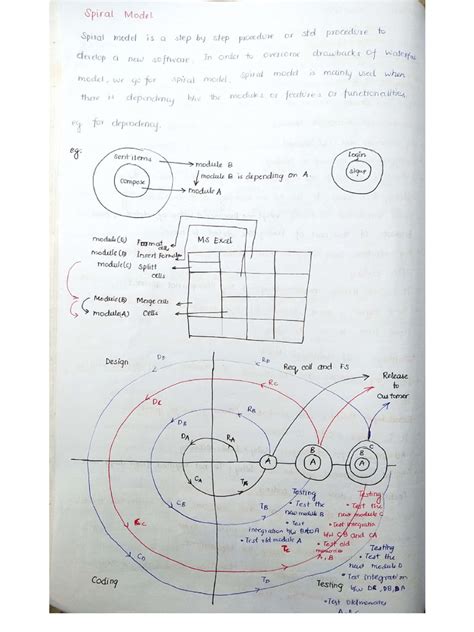 Spiral Model
Spiral model is a step by step procedure or std procedure to
develop a new software. In order to overcome drawbacks of waterfall
model, we go for spiral model. spiral model is mainly used when
there is dependency b/w the modules or features or functionalities.
eg for dependency.
eg:
Sent items
compose
module B
module B is depending on A.
module A
Login
signup
module(E) Format cells
module(D) Insert Formula
module(C) Split
cells
Module(B) Merge cells
module(A) Cells
MS Excel
Design
Req coll and FS
Release
to
Customer
DD
RD
DC
RC
DB
RB
DA
RA
A
B
A
C
B
A
CA
TA
CB
TB
CC
TC
CD
TD
Coding
Testing
• Test the
new module B
• Test
integration b/w B to A
• Test old module A
Testing
• Test the
new module C
• Test integration
b/w CB and CA
• Test old
modules
A, B
Testing
• Test the
new module D
• Test integration
b/w DC, DB, DA
• Test old modules
Testing